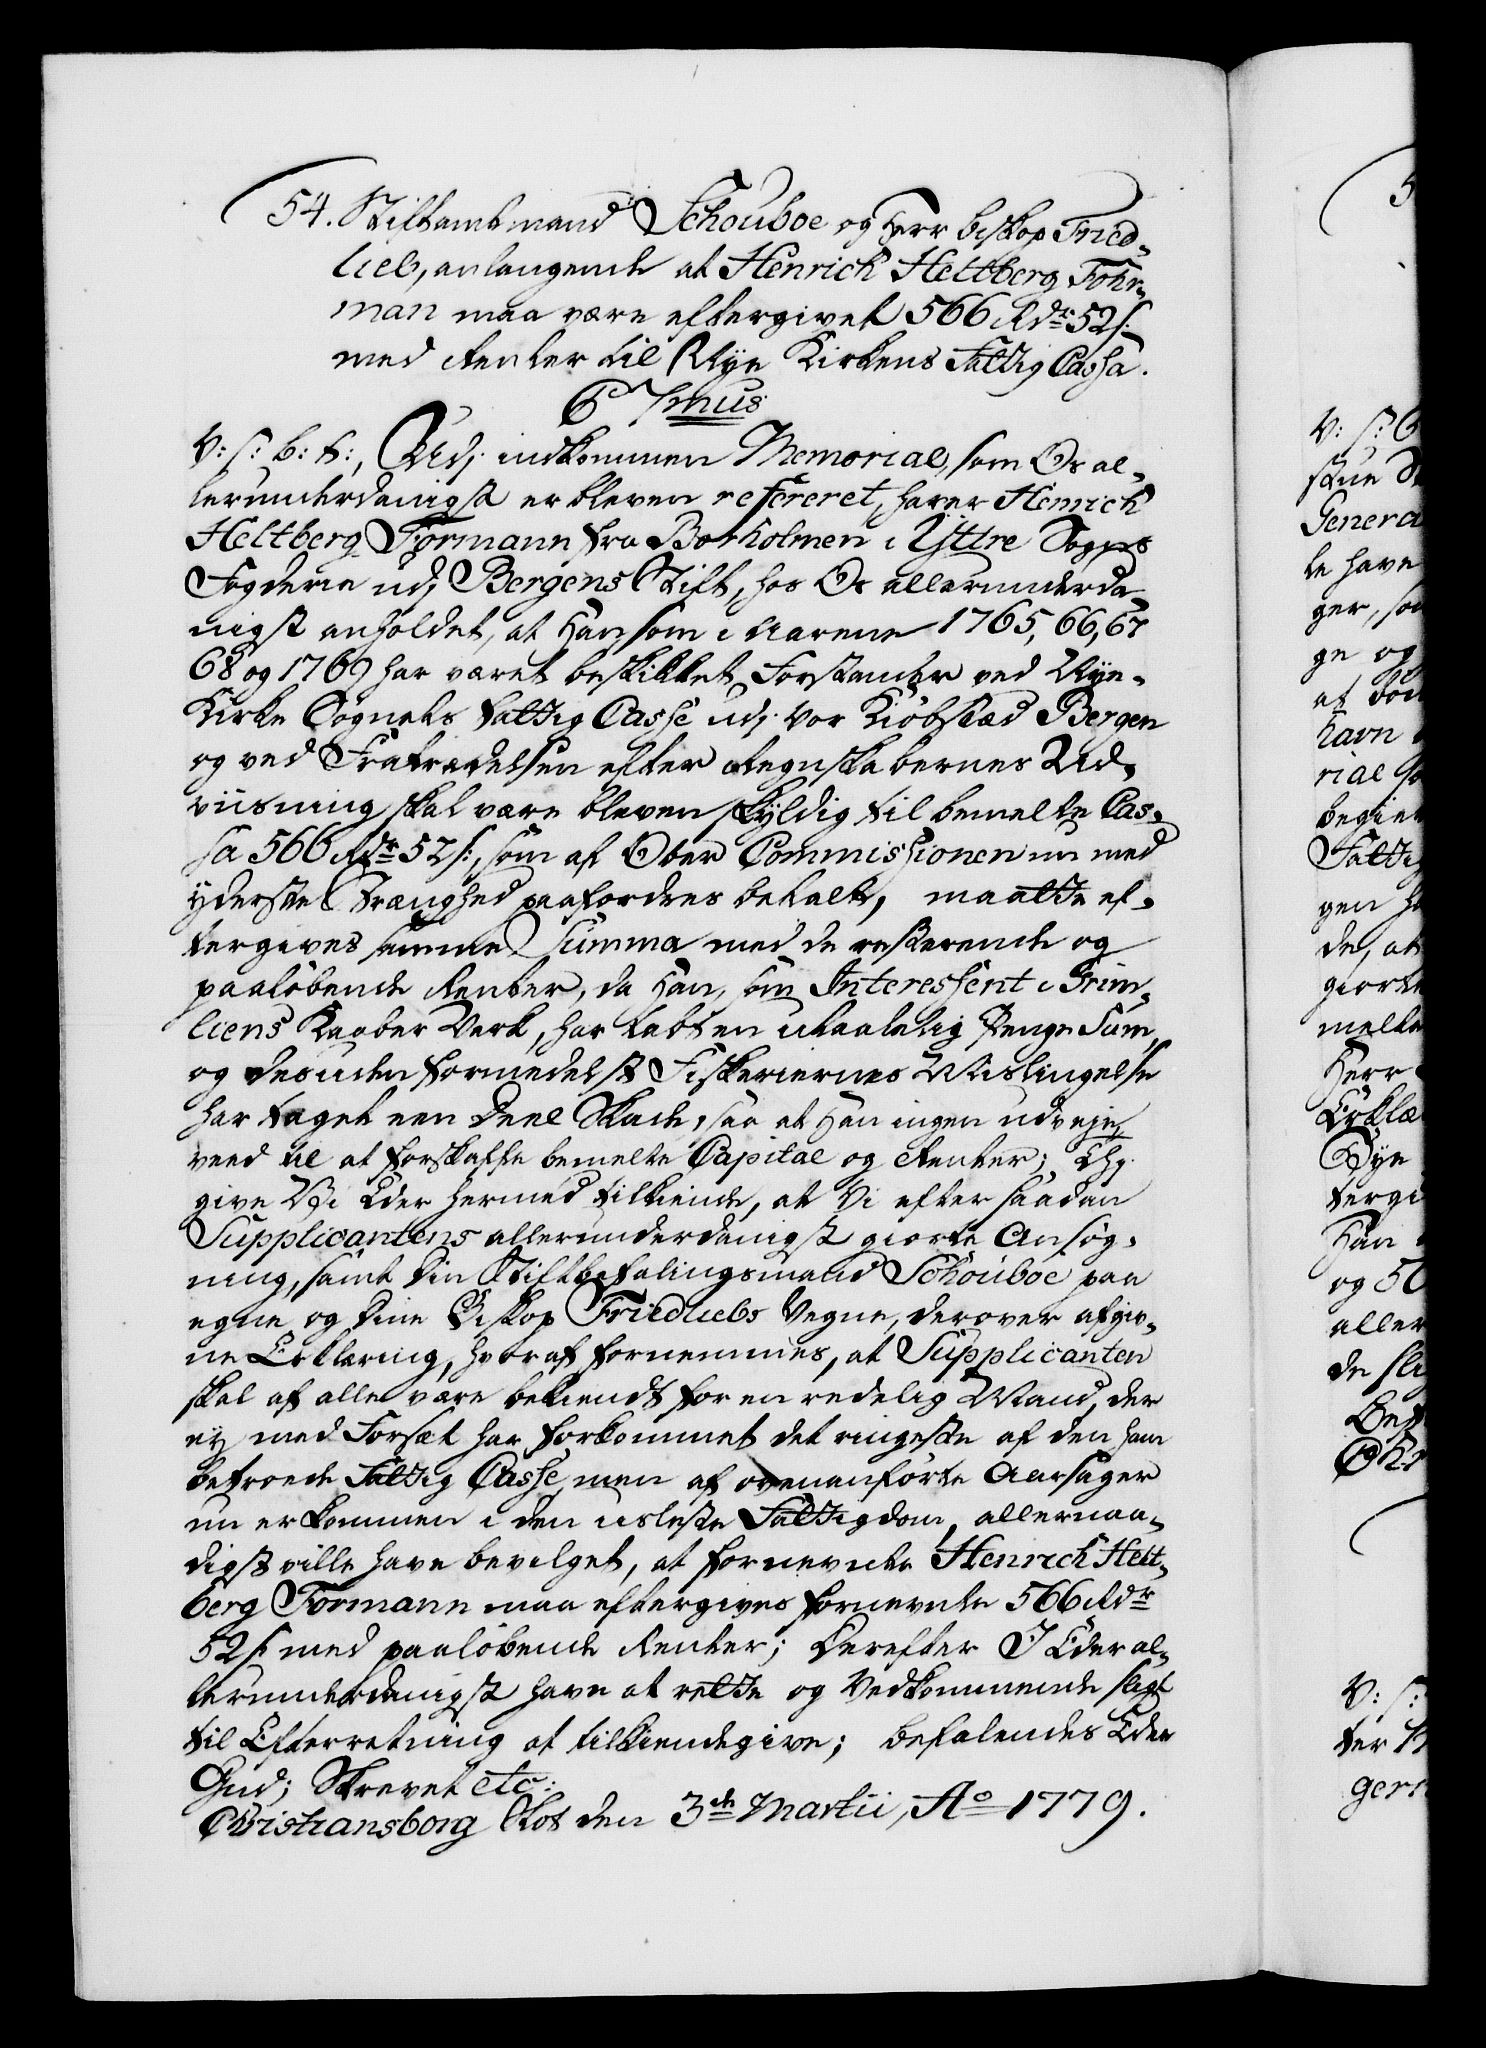 54. Stiftamtmand Schouboe og Herr Biskop Fried-
lieb, anlangende at Henrich Heltberg Fohr-
man maa være eftergivet 566 Rdr 52 s:
med Renter til Nye Kirkens Fattig Cassa.
C 7mus
V: S: G: T:, Udj indkommen Memorial, som Os al-
lerunderdanigst er bleven refereret, haver Henrich
Heltberg Formann fra Borholmen i Yttre Sogns
Fogderie udj Bergens Stift, hos Os allerunderda-
nigst anholdet, at Han, som i Aarene 1765, 66, 67
68 og 1769 har været beskikket Forstander ved Nye-
Kirke Sognets Fattig Casse udj Vor Kiøbstæd Bergen
og ved Fratrædelsen efter Regnskabernes Ud-
viisning skal være bleven skyldig til bemelte Cas-
sa 566 Rdr 52 s:, som af Ober Commissionen nu med
yderste Strænghed paafordres betalt, maatte ef-
tergives samme Summa med de resterende og
paaløbende Renter, da Han, som Interessent i Grim-
liens Kaaber Verk, har tabt en utaalelig Penge Sum,
og desuden formedelst Fiskeriernes Mislingelse
har taget een deel Skade, saa at Han ingen udveje
veed til at forskaffe bemelte Capital og Renter; Thj
give Vi Eder hermed tilkiende, at Vi efter saadan
Supplicantens allerunderdanigst giorte Ansøg-
ning, samt Din Stiftbefalingsmand Schouboe paa
egne og Dine Biskop Friedliebs Vegne, derover afgiv-
ne Erklæring, hvoraf fornemmes, at Supplicanten
skal af alle være bekiendt for en redelig Mand, der
ey med Forsæt har forkommet det ringeste af den ham
betroede Fattig Casse, men af ovenanførte Aarsager
nu er kommen i den usleste Fattigdom, allernaa-
digst ville have bevilget, at fornevnte Henrich Helt-
berg Formann maa eftergives fornevnte 566 Rdr
52 s: med paaløbende Renter; Derefter I Eder al-
lerunderdanigst have at rette og Vedkommende sligt
til Efterretning at tilkiendegive; Befalendes Eder
Gud; Skrevet etc:
Christiansborg Slot den 3de Martii, Ao 1779.